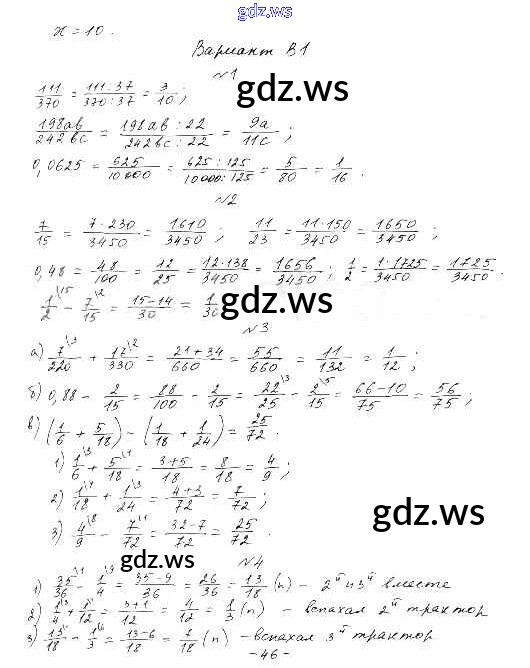 gdz.ws
x = 10.
Вариант В1
№1
111/370 = 111:37/370:37 = 3/10;
198ab/242bc = 198ab:22/242bc:22 = 9a/11c;
0,0625 = 625/10000 = 625:125/10000:125 = 5/80 = 1/16.
gdz.ws
№2
7/15 = 7·230/3450 = 1610/3450; 11/23 = 11·150/3450 = 1650/3450;
0,48 = 48/100 = 12/25 = 12·138/3450 = 1656/3450; 1/2 = 1·1725/3450 = 1725/3450.
1\15/2 - 7\2/15 = 15-14/30 = 1/30
gdz.ws
№3
а) 7\3/220 + 17\2/330 = 21+34/660 = 55/660 = 11/132 = 1/12;
б) 0,88 - 2/15 = 88/100 - 2/15 = 22\3/25 - 2\5/15 = 66-10/75 = 56/75;
в) (1/6 + 5/18) - (1/18 + 1/24) = 25/72.
1) 1\3/6 + 5\1/18 = 3+5/18 = 8/18 = 4/9;
2) 1\4/18 + 1\3/24 = 4+3/72 = 7/72;
3) 4\8/9 - 7\1/72 = 32-7/72 = 25/72.
gdz.ws
gdz.ws
№4
1) 35\1/36 - 1\9/4 = 35-9/36 = 26/36 = 13/18 (п) - 2й и 3й вместе
2) 1\3/4 + 1\1/12 = 3+1/12 = 4/12 = 1/3 (п) - вспахал 2й трактор
3) 13\1/18 - 1\6/3 = 13-6/18 = 7/18 (п) - вспахал 3й трактор
- 46 -